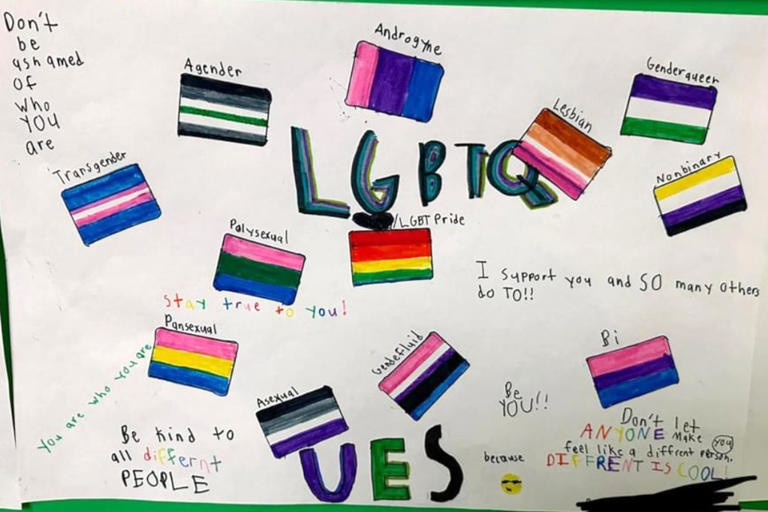 Don't
be
ashamed
of
who
YOU
are
Agender
Androgyne
Genderqueer
Lesbian
LGBTQ
Transgender
Nonbinary
Polysexual
/LGBT Pride
I support you and SO many others
do TO!!
Stay true to you!
Pansexual
You are who you are
Asexual
Gendefluid
Bi
Be
YOU!!
Be kind to
all differnt
PEOPLE
UES
because
Don't let
ANYONE make you
feel like a different person.
DIFFRENT IS COOL!